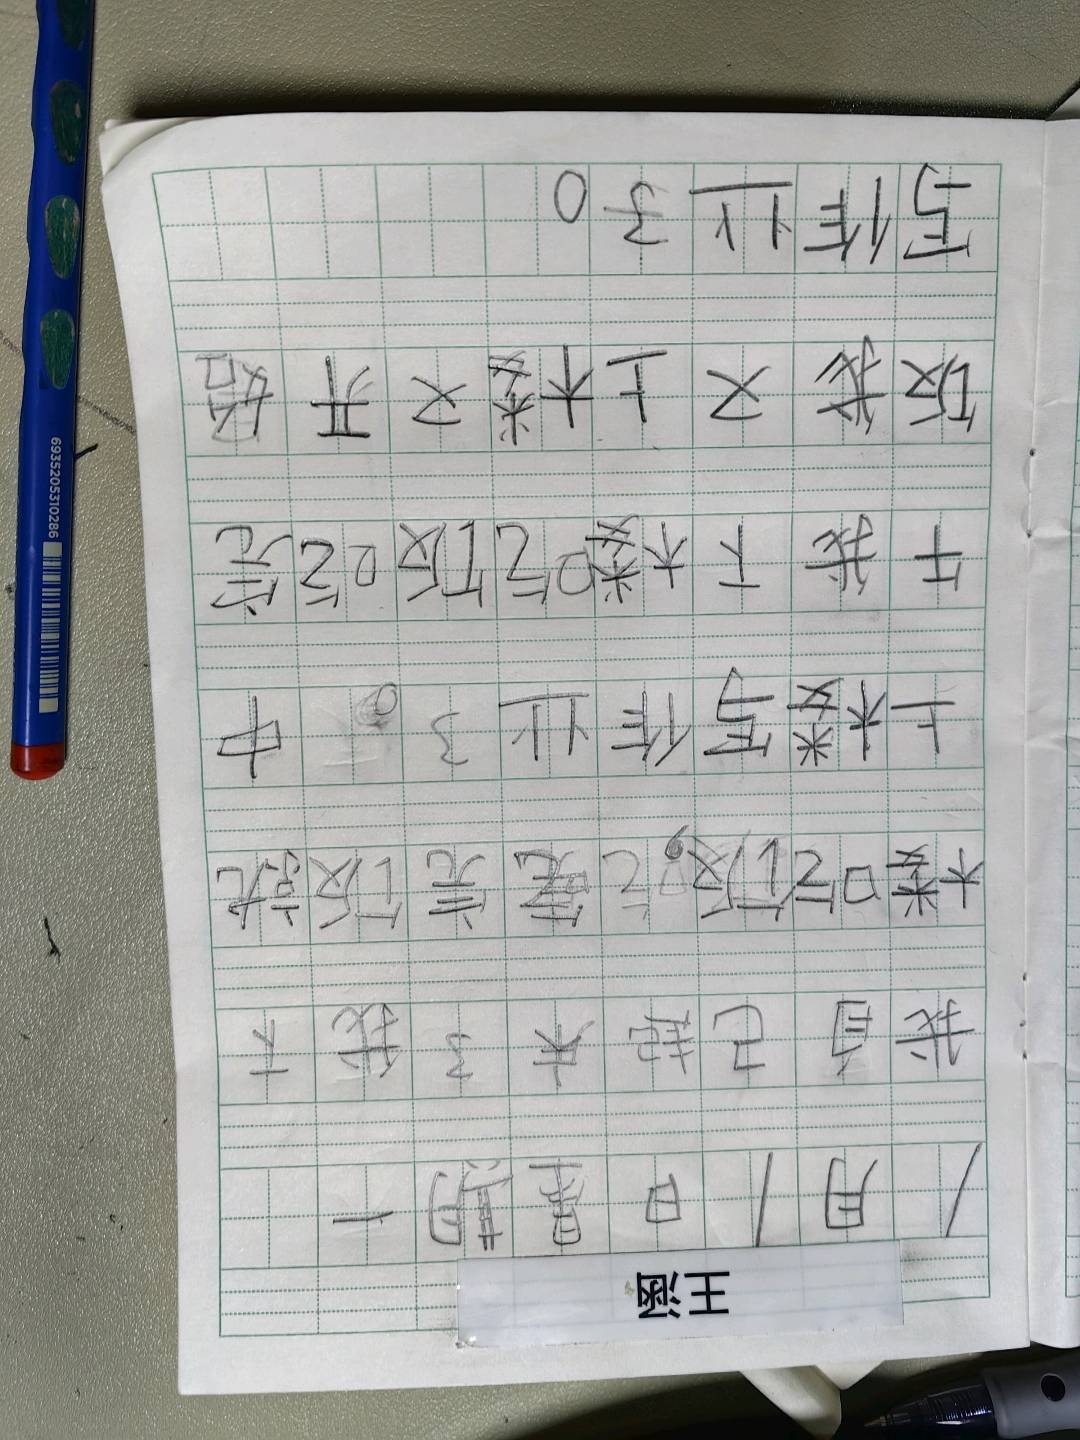 王涵
1月1日星期一
我自己起来了我下
楼吃饭,吃完饭就
上楼写作业了。中
午我下楼吃饭吃完
饭我又上楼又开始
写作业了。
6935205310286